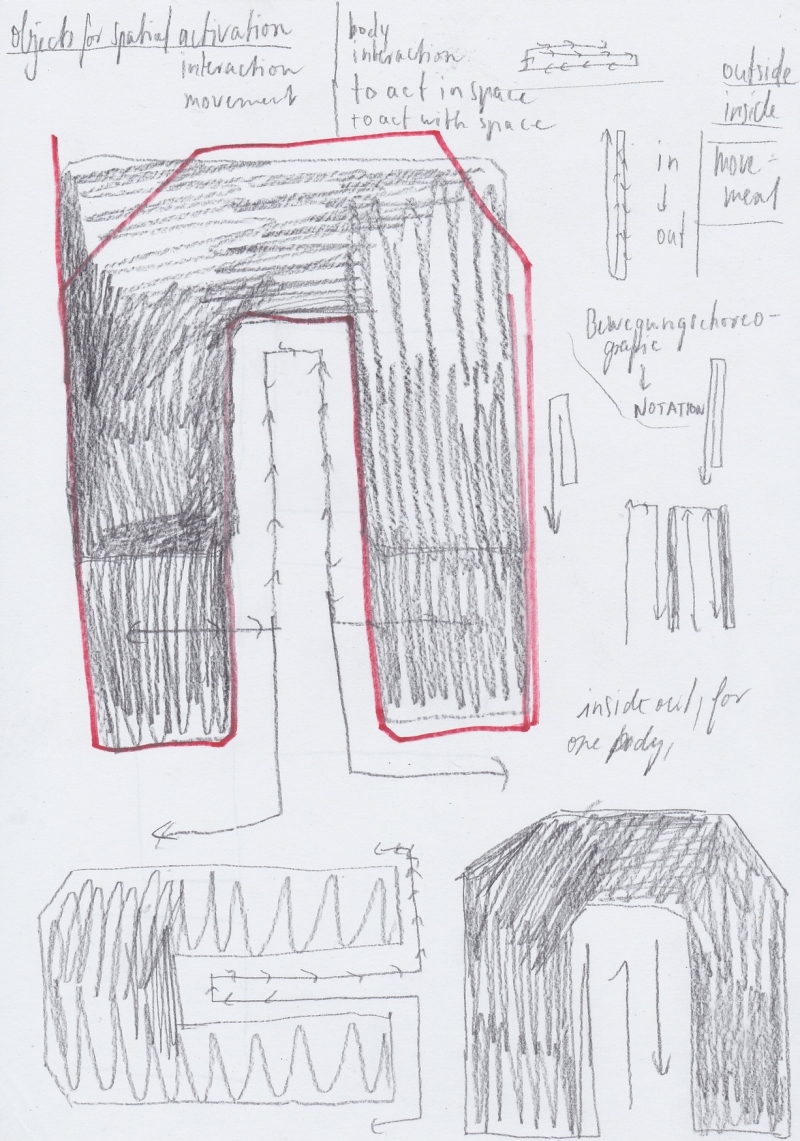 objects for spatial activation
interaction
movement
body
interaction
to act in space
to act with space
outside
inside
in
out
move-
ment
Bewegungschoreo-
graphie
NOTATION
inside out, for
one body,